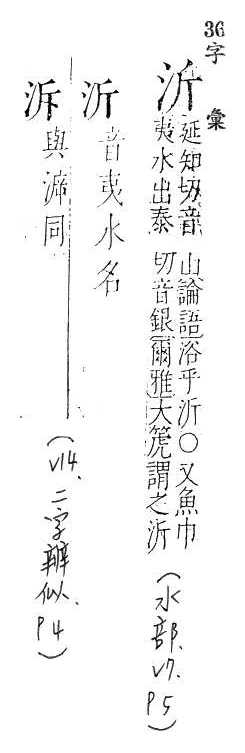 36 字彙
沂 延知切音
夷水出泰
山論語浴乎沂○又魚巾
切音銀爾雅大箎謂之沂
(水部.V7.P5)
沂 音夷水名
泝 與同
(V14.二字辨似.P4)